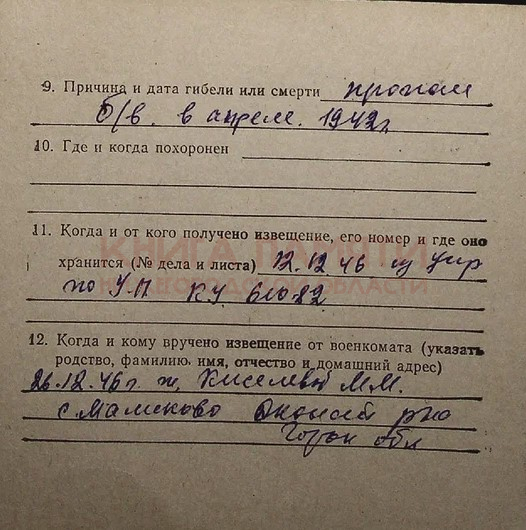 9. Причина и дата гибели или смерти пропал
б/в. в апреле. 1942г
10. Где и когда похоронен
11. Когда и от кого получено извещение, его номер и где оно
хранится (№ дела и листа) 12.12 46 из Упр
по У.П. КУ 61082
12. Когда и кому вручено извещение от военкомата (указать
родство, фамилию, имя, отчество и домашний адрес)
26.12.46г. ж, Киселевой М.М.
с. Мамсково рно
Горьк обл
КНИГА ПАМЯТИ
НИЖЕГОРОДСКОЙ ОБЛАСТИ